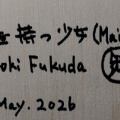 を持つ少女(Mai
oki Fukuda
May. 2026